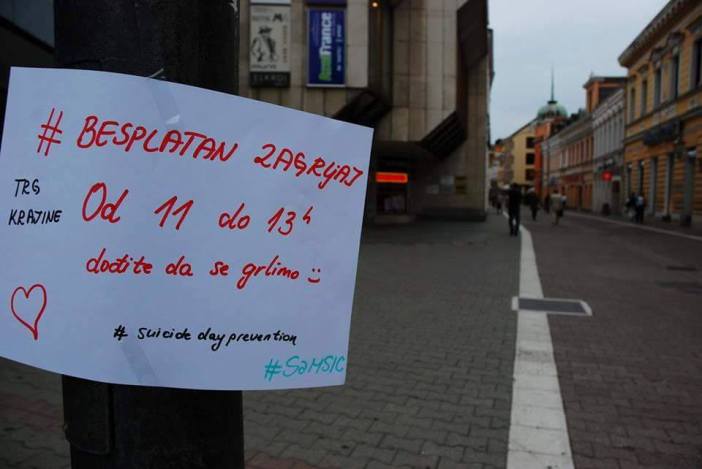 # BESPLATAN ZAGRljAJ
TRG
KRAJINE
Od 11 do 13h
dođite da se grlimo :)
# suicide day prevention
#SaMSIC